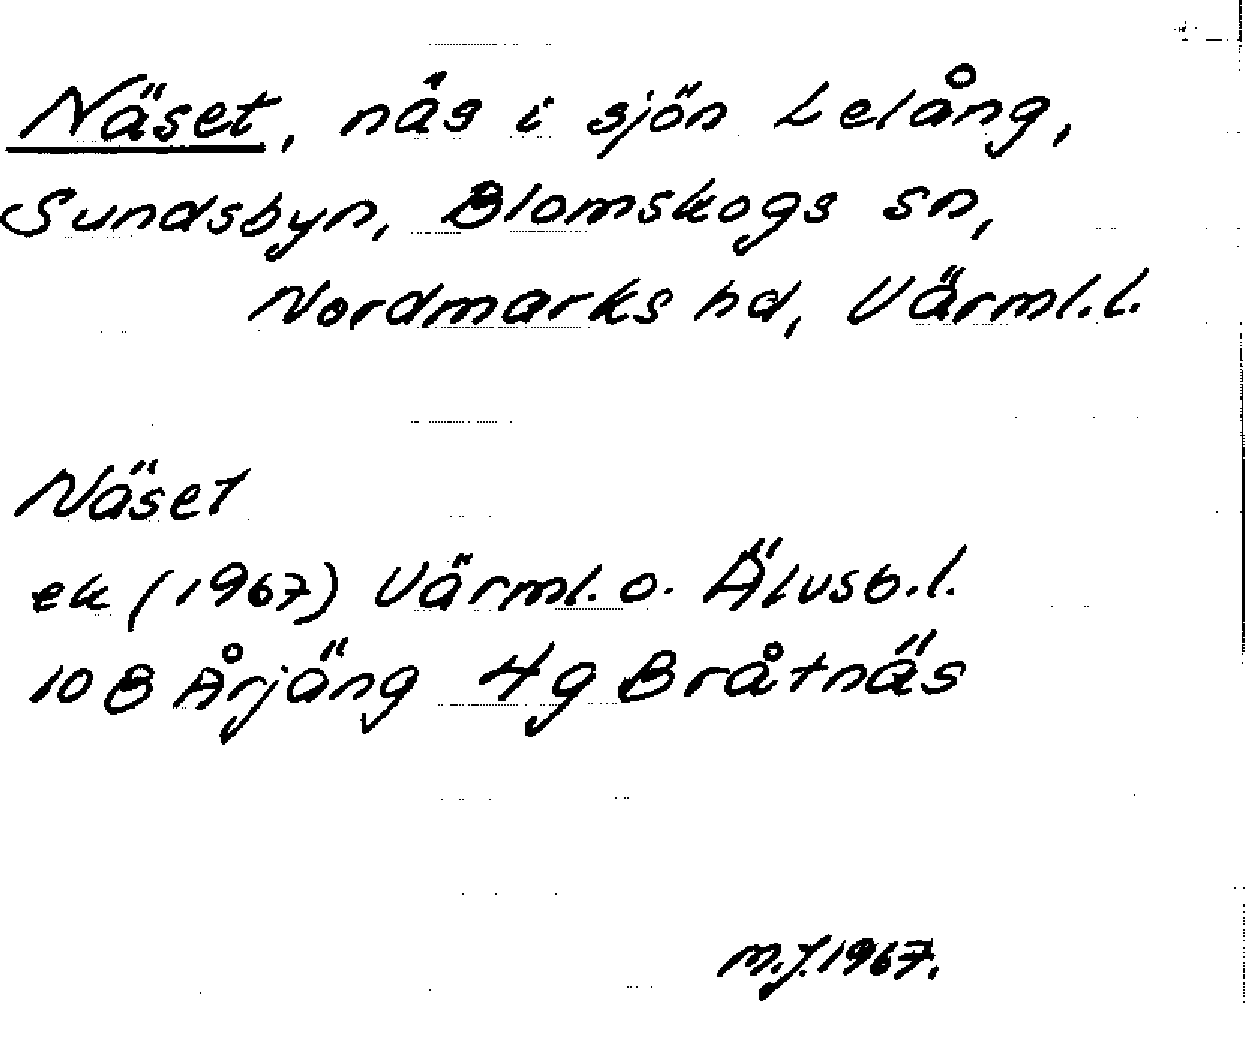 Näset, näs i sjön Lelång,
Sundsbyn, Blomskogs sn,
Nordmarks hd, Värml.l.
Näset
ek (1967) Värml. o. Älvsb.l.
10 B Årjäng 4g Bråtnäs
M.J. 1967.